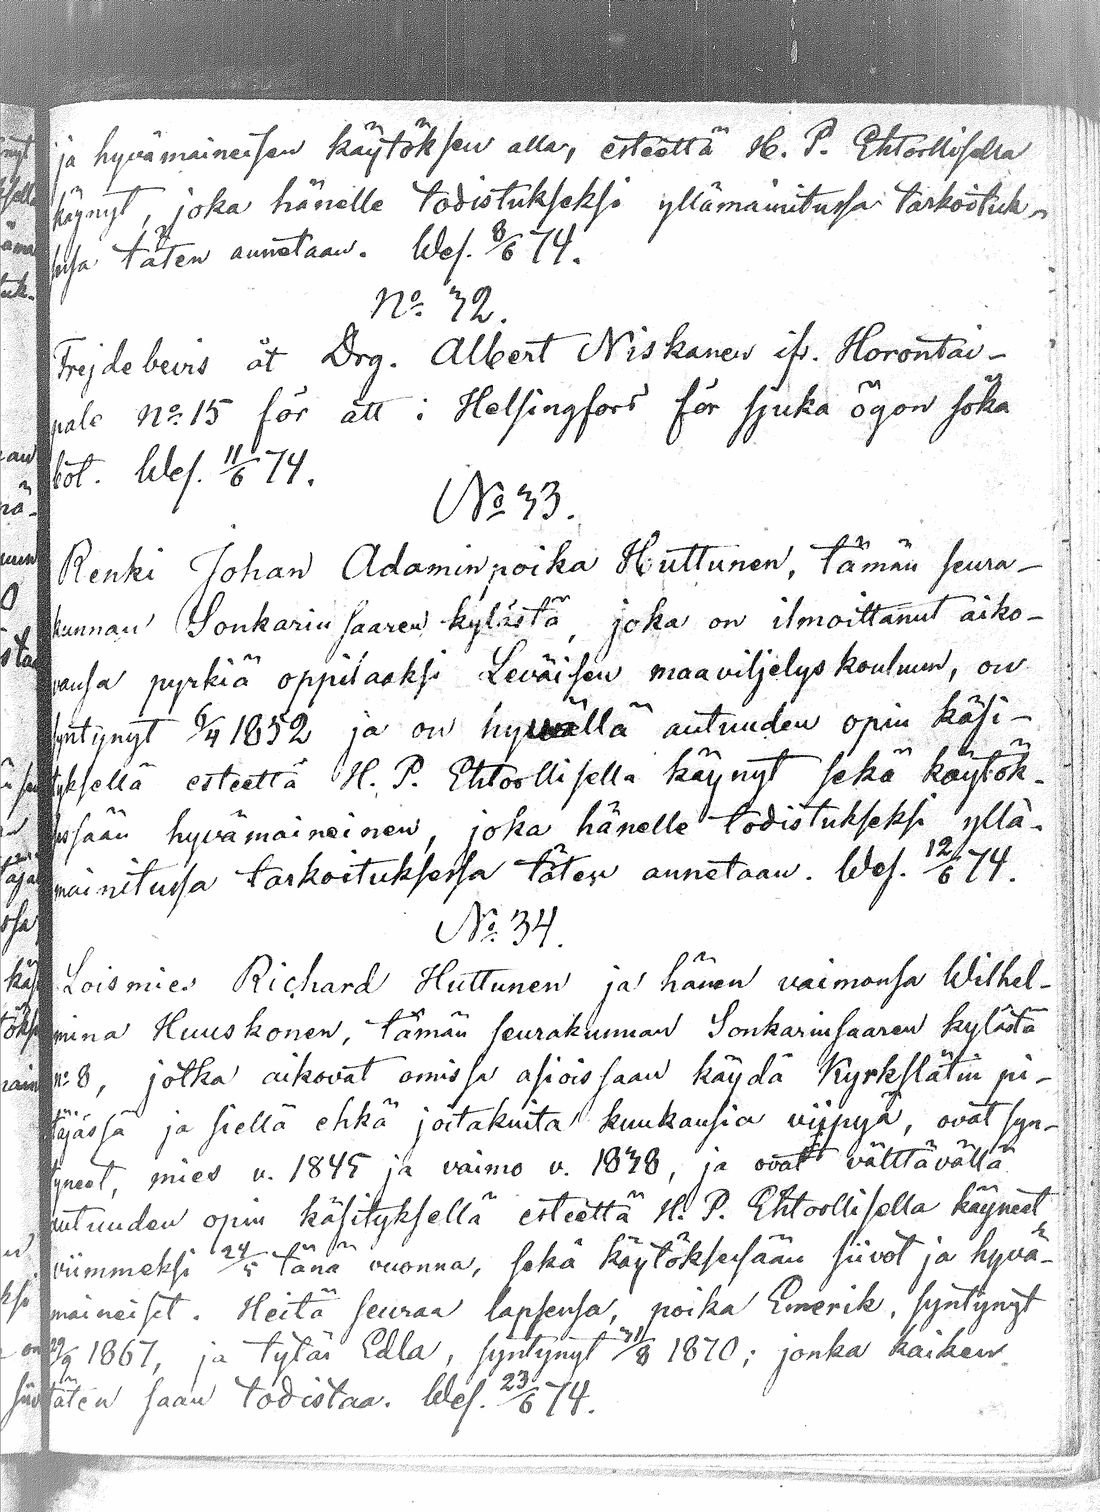 ja hyvämaineisen käytöksen alla, esteettä H. P. Ehtoollisella
käynyt, joka hänelle todistukseksi yllämainitussa tarkoituk-
sessa täten annetaan. Wes. 8/6 74.
No 32.
Frejdebevis åt Drg. Albert Niskanen ifr. Horontai-
pale No 15 för att i Helsingfors för sjuka ögon söka
bot. Wes. 11/6 74.
No 33.
Renki Johan Adaminpoika Huttunen, tämän seura-
kunnan Sonkarinsaaren kylästä, joka on ilmoittanut aiko-
vansa pyrkiä oppilaaksi Leväisen maaviljelyskouluun, on
syntynyt 6/4 1852 ja on hyvällä autuuden opin käsi-
tyksellä esteettä H. P. Ehtoollisella käynyt sekä käytök-
sessään hyvämaineinen, joka hänelle todistukseksi yllä-
mainitussa tarkoituksessa täten annetaan. Wes. 12/6 74.
No 34.
Loismies Richard Huttunen ja hänen vaimonsa Wilhel-
mina Huuskonen, tämän seurakunnan Sonkarinsaaren kylästä
No 8, jotka aikovat omissa asioissaan käydä Kyrkslätin pi-
täjässä ja siellä ehkä joitakuita kuukausia viipyä, ovat syn-
tyneet, mies v. 1845 ja vaimo v. 1838, ja ovat välttävällä
autuuden opin käsityksellä esteettä H. P. Ehtoollisella käyneet
viimmeksi 24/5 tänä vuonna, sekä käytöksessään siivot ja hyvä-
maineiset. Heitä seuraa lapsensa, poika Emerik, syntynyt
29/9 1867, ja tytär Edla, syntynyt 31/8 1870; jonka kaiken
täten saan todistaa. Wes. 23/6 74.